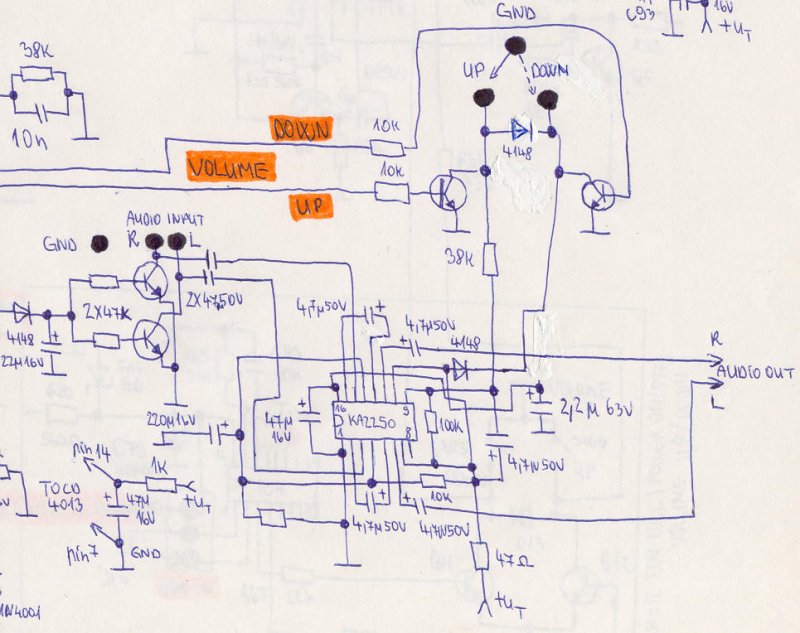 GND
C93
16V
+UT
38K
UP
DOWN
10n
DOWN
10K
4148
VOLUME
10K
UP
AUDIO INPUT
GND
R
L
38K
2X47K
2X4,7µ50V
4,7µ50V
4,7µ50V
4148
R
4148
22µ16V
AUDIO OUT
L
220µ16V
47µ
16V
16
9
KA2250
1
8
100K
2,2µ 63V
4,7µ50V
pin14
1K
TO CD
4013
47µ
16V
+UT
10K
4,7µ50V
4,7µ50V
pin7
GND
47Ω
+UT
1N4001